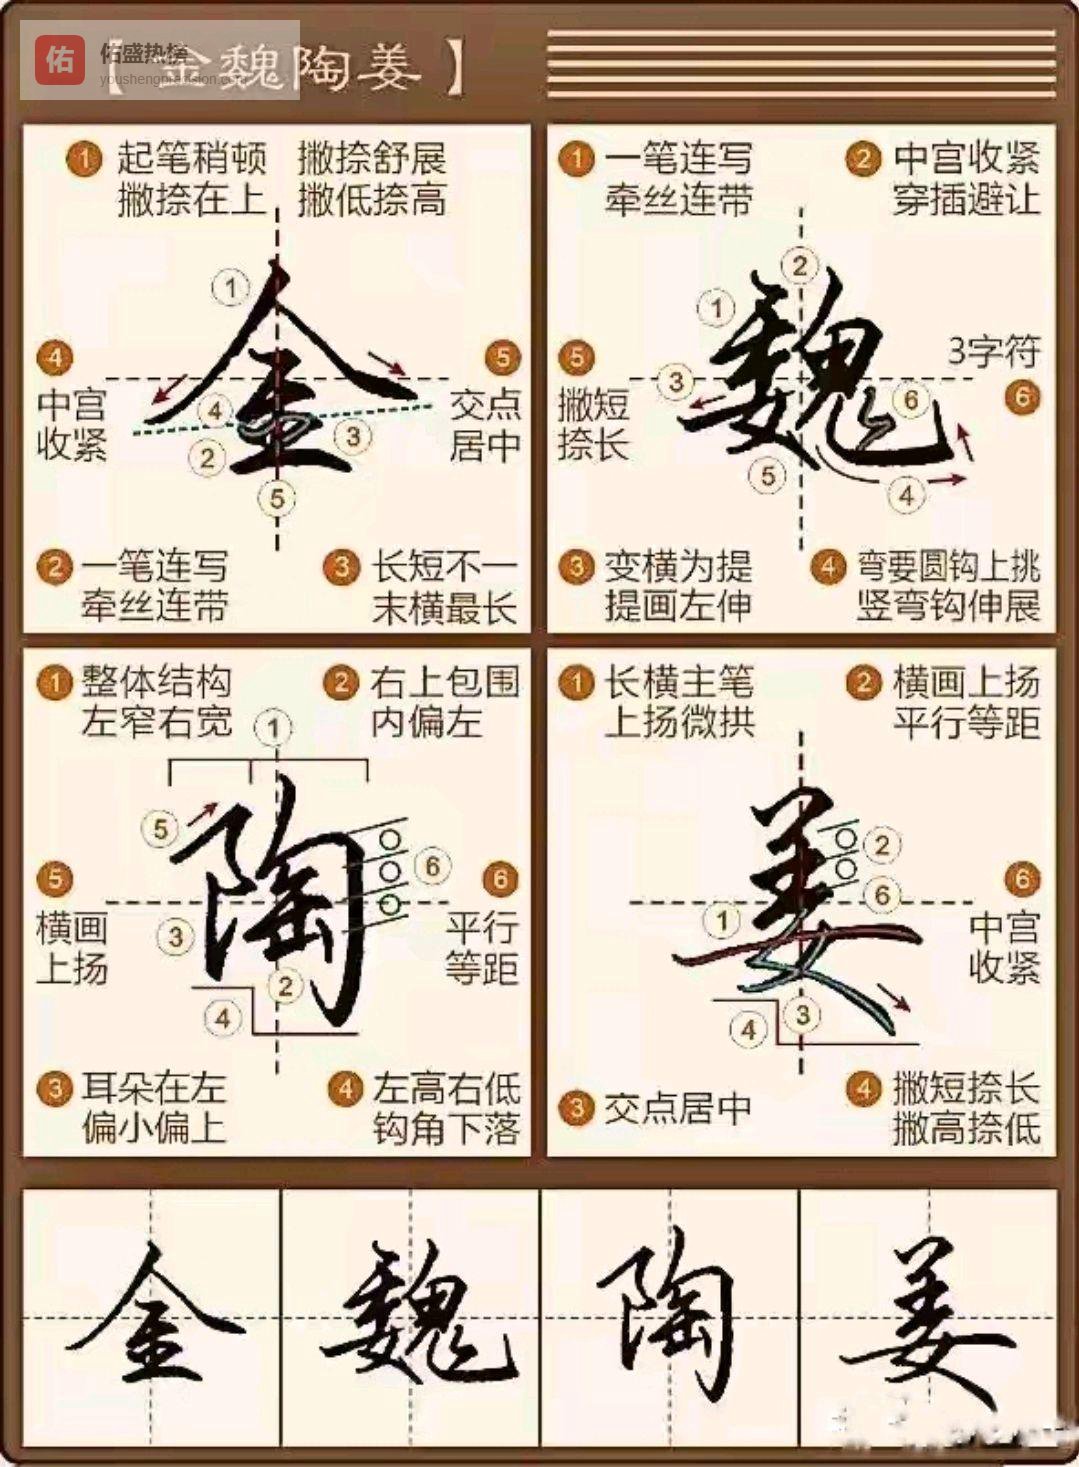 佑 佑盛热榜
youshengpræcision.com
【金魏陶姜】
① 起笔稍顿 撇捺舒展
撇捺在上 撇低捺高
①
④
中宫
收紧
⑤
交点
居中
④
②
③
⑤
② 一笔连写
牵丝连带
③ 长短不一
末横最长
金
① 一笔连写
牵丝连带
② 中宫收紧
穿插避让
②
①
③
⑤
撇短
捺长
3字符
⑥
⑥
⑤
④
③ 变横为提
提画左伸
④ 弯要圆钩上挑
竖弯钩伸展
魏
① 整体结构
左窄右宽
② 右上包围
内偏左
①
⑤
⑥
③
②
④
⑤
横画
上扬
⑥
平行
等距
③ 耳朵在左
偏小偏上
④ 左高右低
钩角下落
陶
① 长横主笔
上扬微拱
② 横画上扬
平行等距
②
⑥
①
③
④
⑥
中宫
收紧
③ 交点居中
④ 撇短捺长
撇高捺低
姜
金 魏 陶 姜